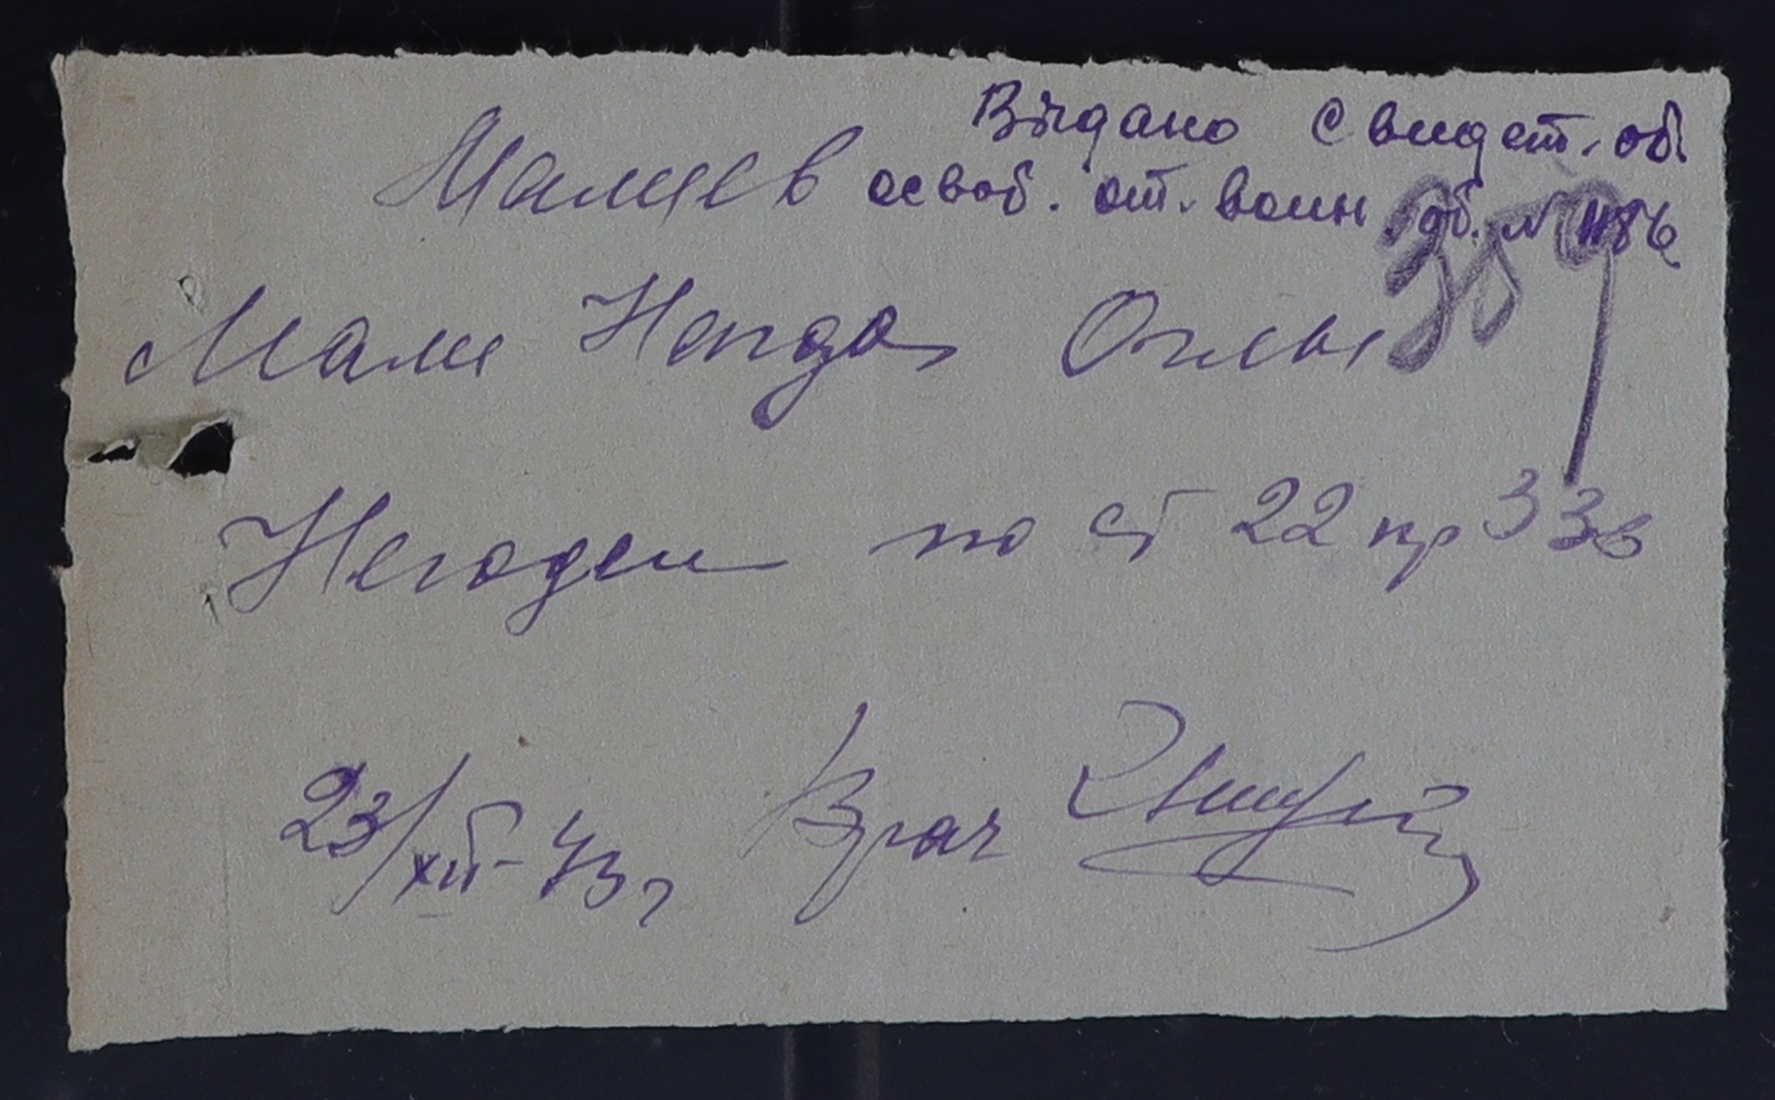 Выдано свидет. об
освоб. от. воин об. N 1186
Малиев
359
Мали Огды
Негоден по ст 22 пр 336
23/XII-43 г Врач